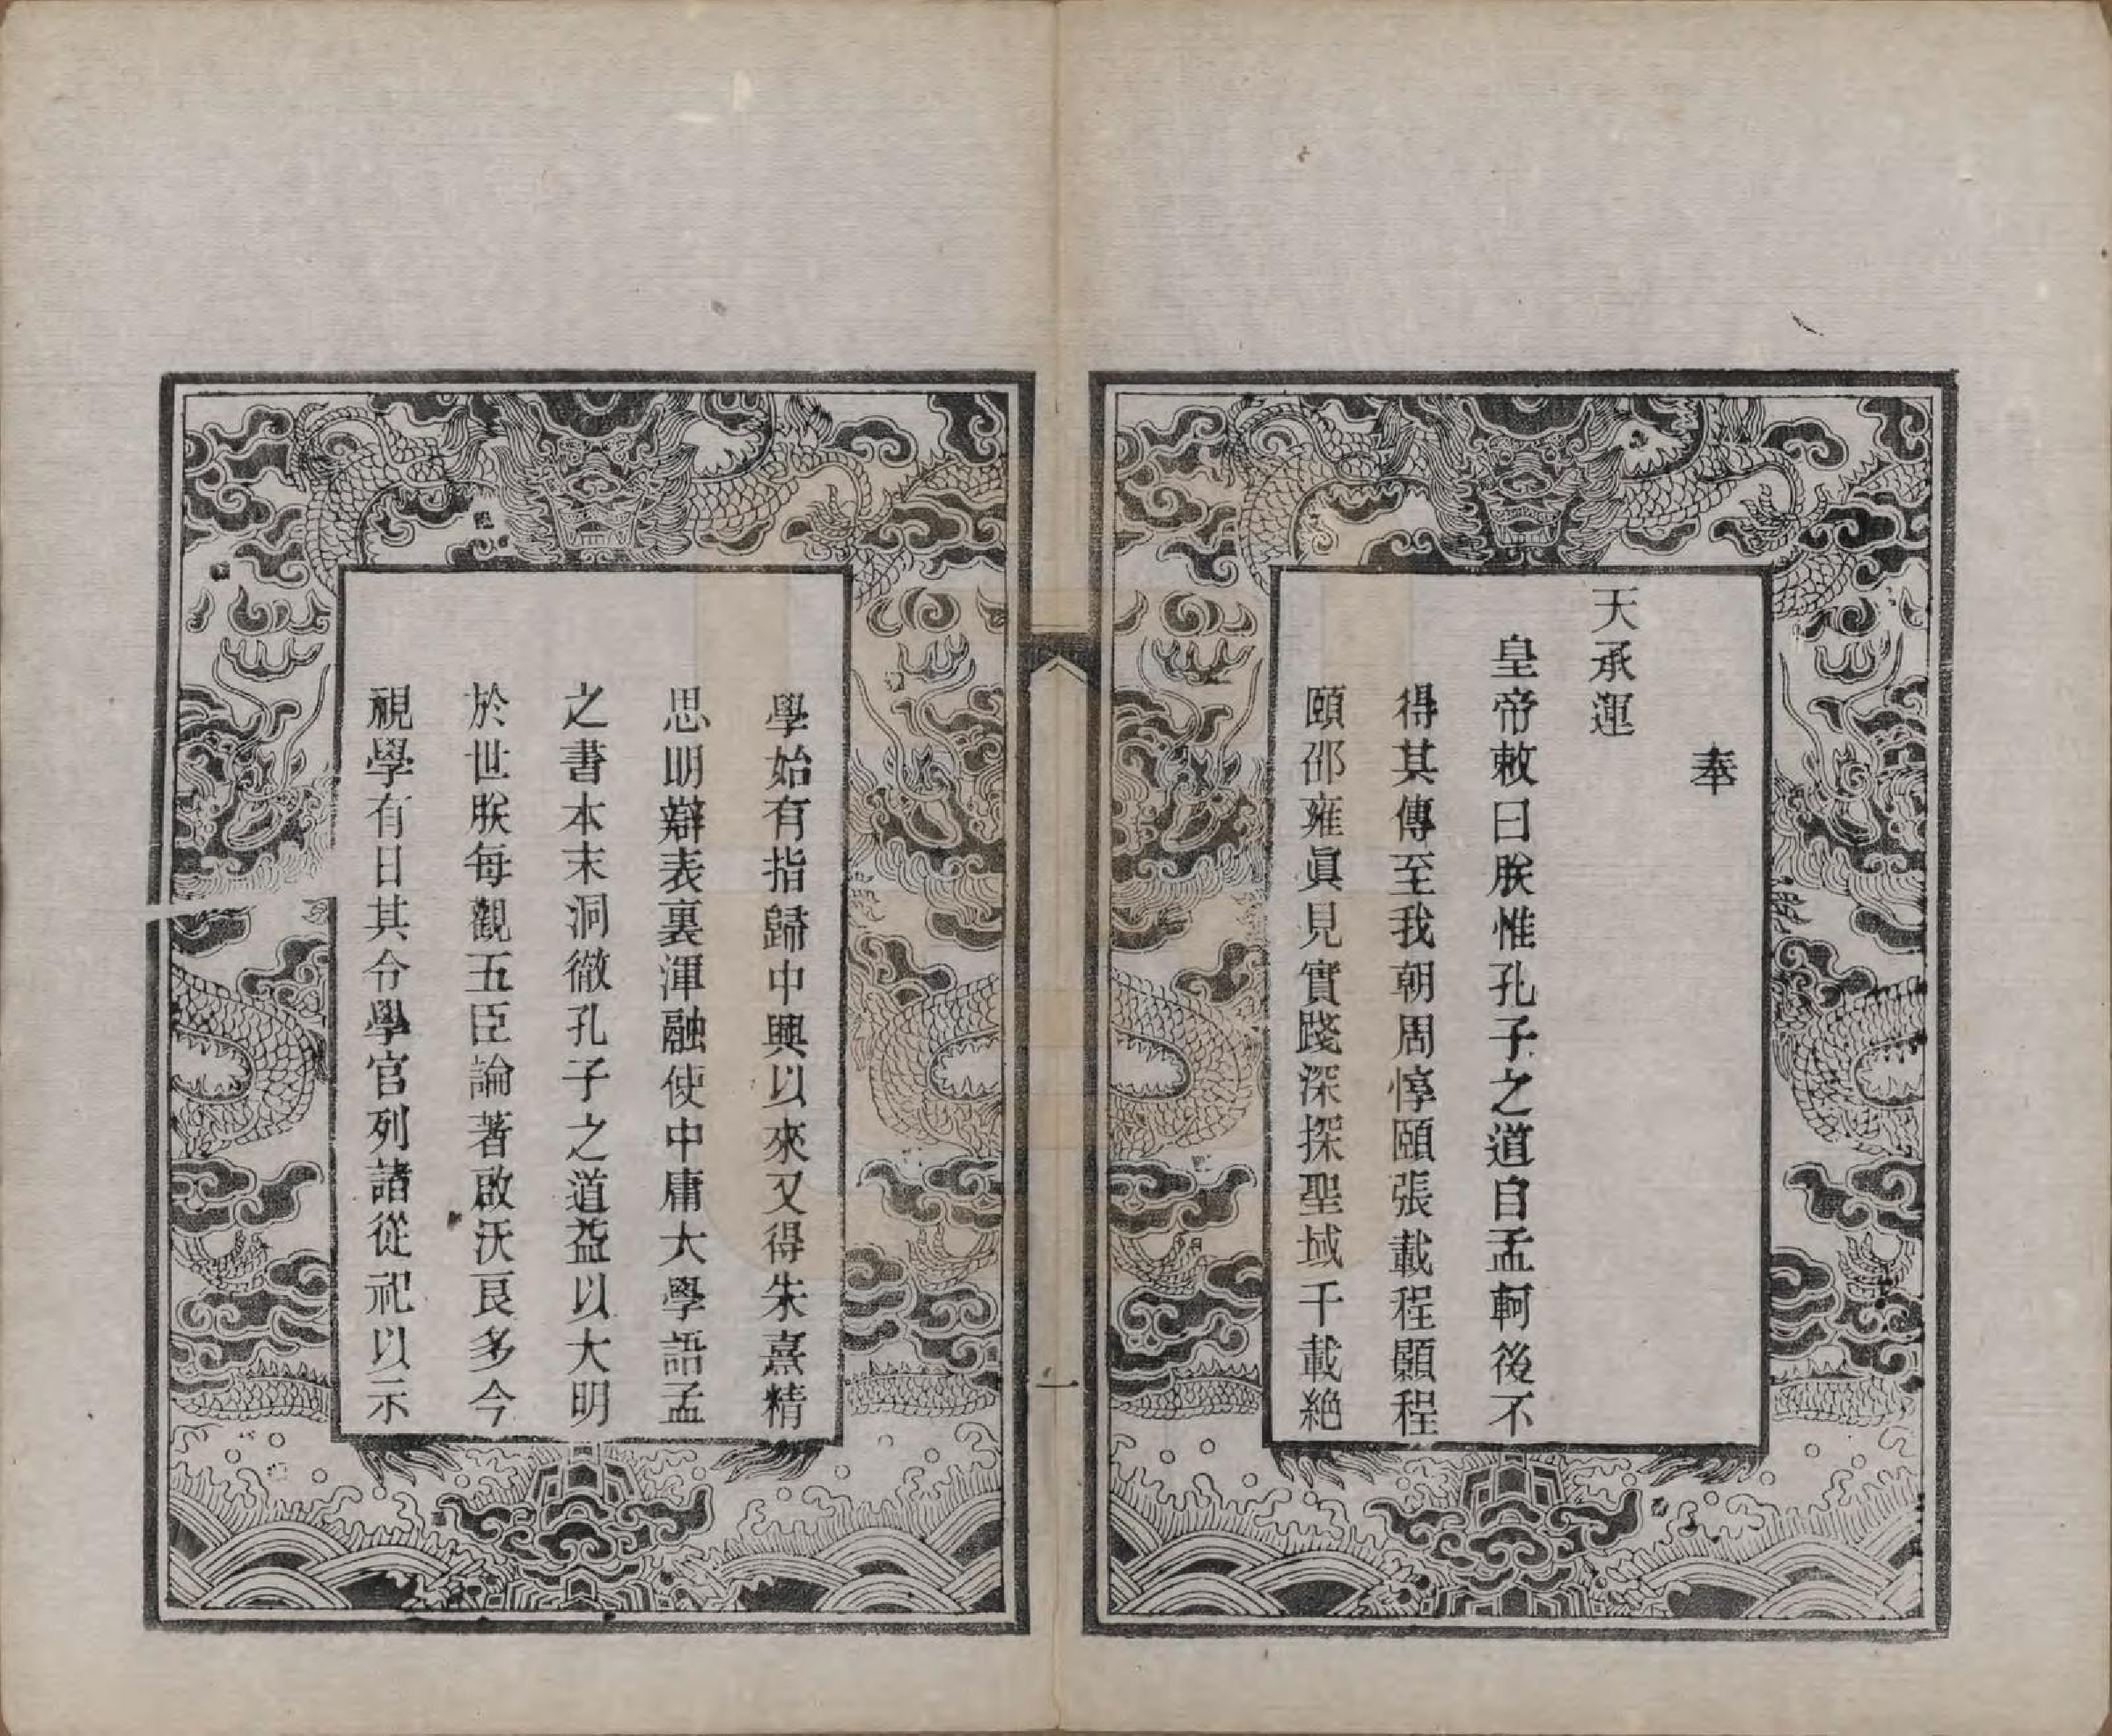 奉
天承運
皇帝敕曰朕惟孔子之道自孟軻後不
得其傳至我朝周惇頤張載程顥程
頤邵雍眞見實踐深探聖域千載絶
學始有指歸中興以來又得朱熹精
思明辯表裏渾融使中庸大學語孟
之書本末洞徹孔子之道益以大明
於世朕每觀五臣論著啟沃良多今
視學有日其令學官列諸從祀以示
一